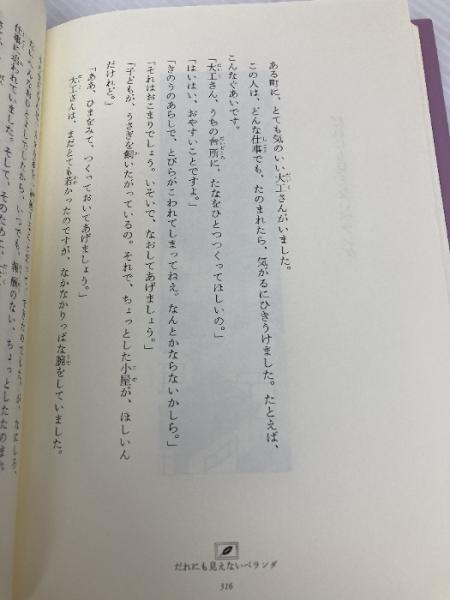 ある町に、とても気のいい大工さんがいました。
この人は、どんな仕事でも、たのまれたら、気がるにひきうけました。たとえば、
こんなぐあいです。
「大工さん、うちの台所に、たなをひとつつくってほしいの。」
「はいはい、おやすいことですよ。」
「きのうのあらしで、とびらがこわれてしまってねえ。なんとかならないかしら。」
「それはおこまりでしょう。いそいで、なおしてあげましょう。」
「子どもが、うさぎを飼いたがっているの。それで、ちょっとした小屋が、ほしいん
だけれど。」
「ああ、ひまをみて、つくっておいてあげましょう。」
大工さんは、まだとても若かったのですが、なかなかりっぱな腕をしていました。
仕事に追われていました。そして、そのために、
いつでも、報酬のない、ちょっとしたたのまれ
だれにも見えないベランダ
326